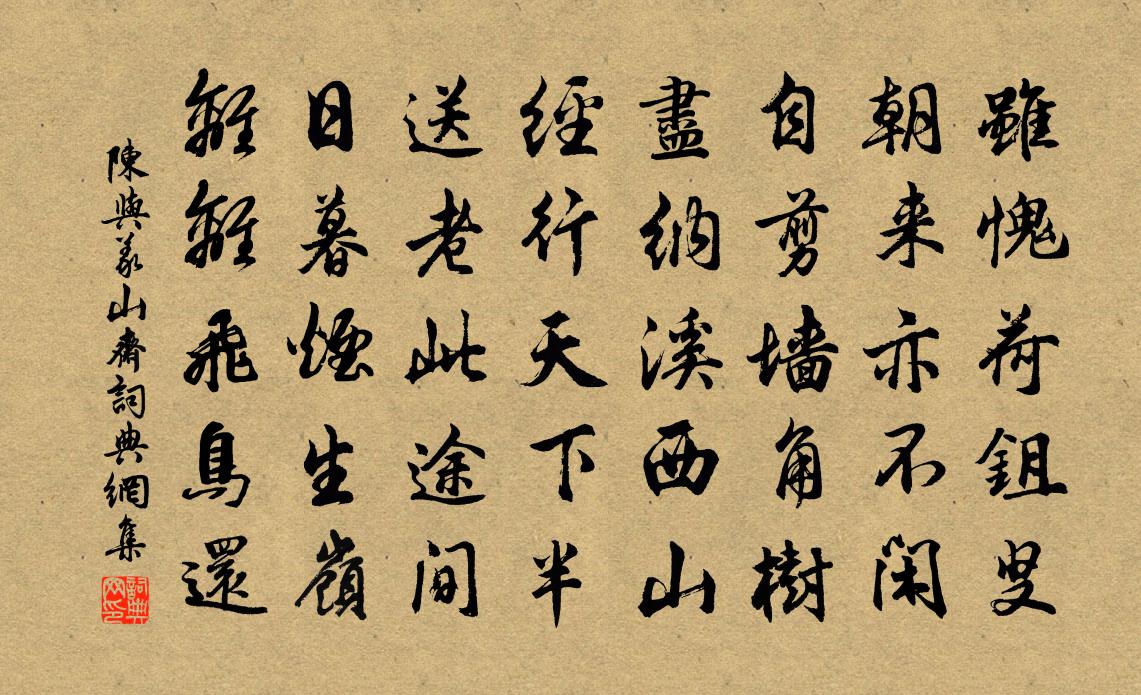 雖愧荷鉏叟
朝来亦不閑
自剪墙角樹
盡納溪西山
經行天下半
送老此途間
日暮煙生嶺
離離飛鳥還
陳與義山齋詞典網集
詞典网印